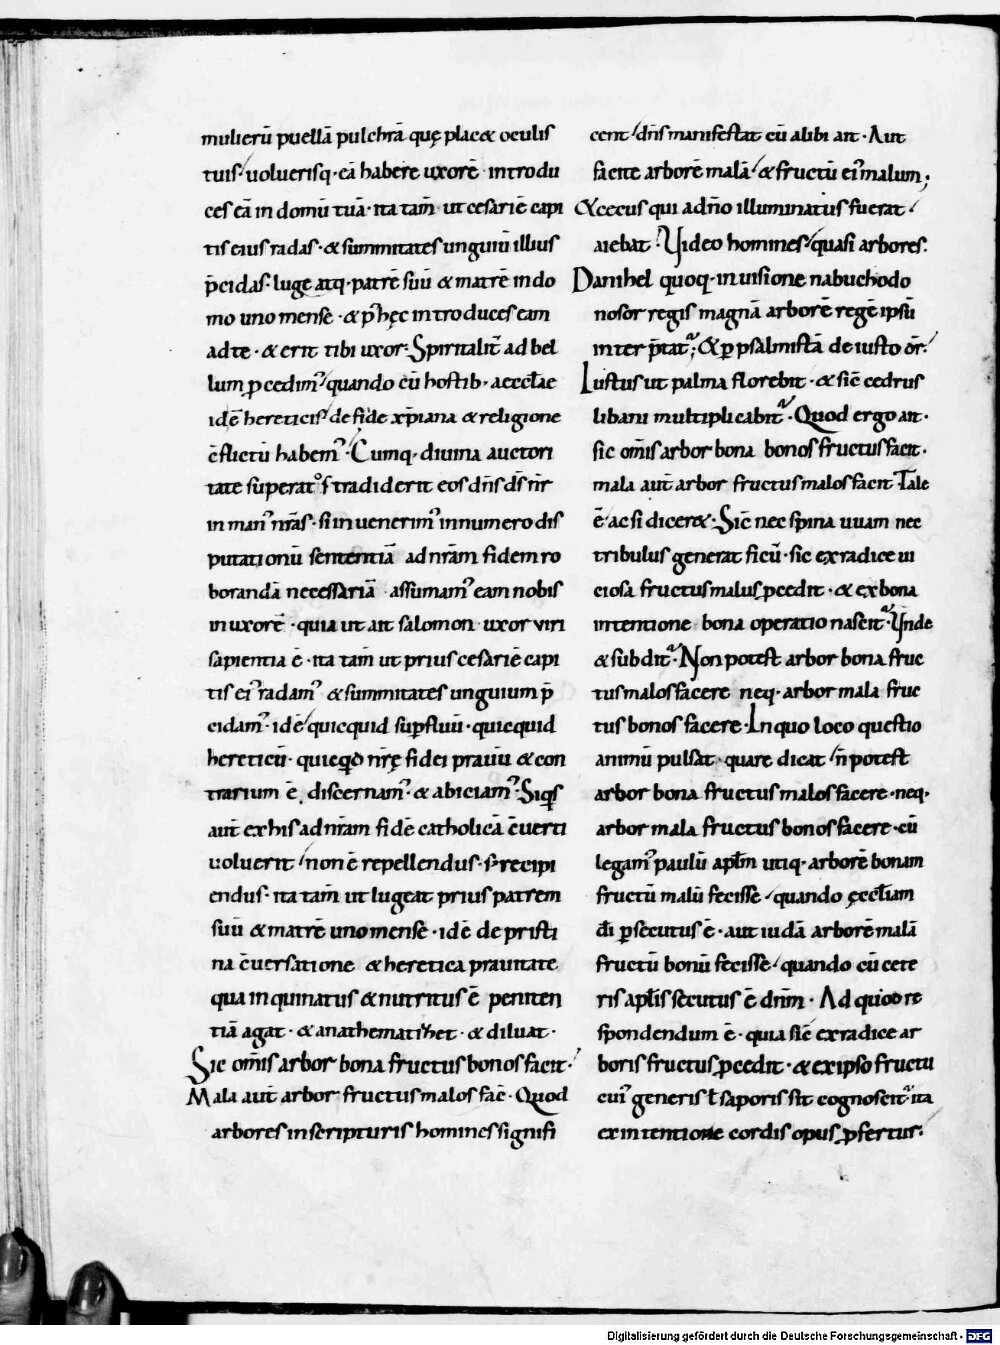 mulierū puellā pulchrā quę plac& oculis
tuis. uoluerisq· eā habere uxorē introdu
ces eā in domū tuā· ita tam̄ ut cesariē capi
tis eius radas· & summitates unguiū illius
p̄cidas· luge atq· patrē suū & matrē in do
mo uno mense· & p᷒ hęc introduces eam
ad te· & erit tibi uxor· Spiritalit̄ ad bel
lum ꝓcedim᷒ quando cū hostib· aeccl̄ae
idē hereticis· de fide xp̄iana & religione
c̄flictū habem᷒· Cumq· diuina auctori
tate superatos tradiderit eos dn̄s ds̄ nr̄
in man᷒ nr̄as· si inuenerim᷒ in numero dis
putationū sententiā ad nr̄am fidem ro
borandā necessariā assumam᷒ eam nobis
in uxorē· quia ut ait salomon uxor viri
sapientia ē· ita tam̄ ut prius cesariē capi
tis ei᷒ radam᷒ & summitates unguium p̄
cidam᷒· idē quicquid suꝑfluū· quicquid
hereticū· quicqd nr̄ę fidei prauū & con
trarium ē discernam᷒· & abiciam᷒· Siqs
aut̄ ex his ad nr̄am fidē catholicā c̄uerti
uoluerit non ē repellendus· s; recipi
endus· ita tam̄ ut lugeat prius patrem
suū & matrē uno mense· idē de pristi
na c̄uersatione & heretica prauitate
qua inquinatus & nutritus ē peniten
tiā agat· & anathematizet· & diluat·
Sic om̄is arbor bona fructus bonos facit·
Mala aut̄ arbor fructus malos fac̄· Quod
arbores in scripturis homines signifi
cent dn̄s manifestat cū alibi ait· Aut
facite arborē malā & fructū ei᷒ malum;
& cecus qui a dn̄o illuminatus fuerat
aiebat· Video homines quasi arbores·
Danihel quoq· in uisione nabuchodo
nosor regis magnā arborē regē ipsū
interp̄tat᷑; & ꝑ psalmistā de iusto dr̄·
Iustus ut palma florebit· & sic̄ cedrus
libani multiplicabit᷑· Quod ergo ait·
sic om̄is arbor bona bonos fructus facit·
mala aut̄ arbor fructus malos facit Tale
ē ac si dicer&· Sic̄ nec spina uuam nec
tribulus generat ficū· sic ex radice ui
ciosa fructus malus ꝓcedit· & ex bona
intentione bona operatio nascit᷑· Vnde
& subdit᷑· Non potest arbor bona fruc
tus malos facere neq· arbor mala fruc
tus bonos facere· In quo loco questio
animū pulsat· quare dicat n̄ potest
arbor bona fructus malos facere· neq·
arbor mala fructus bonos facere· cū
legam᷒ paulū apl̄m utiq· arborē bonam
fructū malū fecisse quando ęccl̄iam
dī ꝑsecutus ē· aut iudā arborē malā
fructū bonū fecisse quando cū cete
ris apl̄is secutus ē dn̄m· Ad quod re
spondendum ē· quia sic̄ ex radice ar
boris fructus ꝓcedit· & ex ipso fructu
cui᷒ generis ł saporis sit cognoscit᷑ ita
ex intentione cordis opus ꝓfertur·
Digitalisierung gefördert durch die Deutsche Forschungsgemeinschaft - DFG